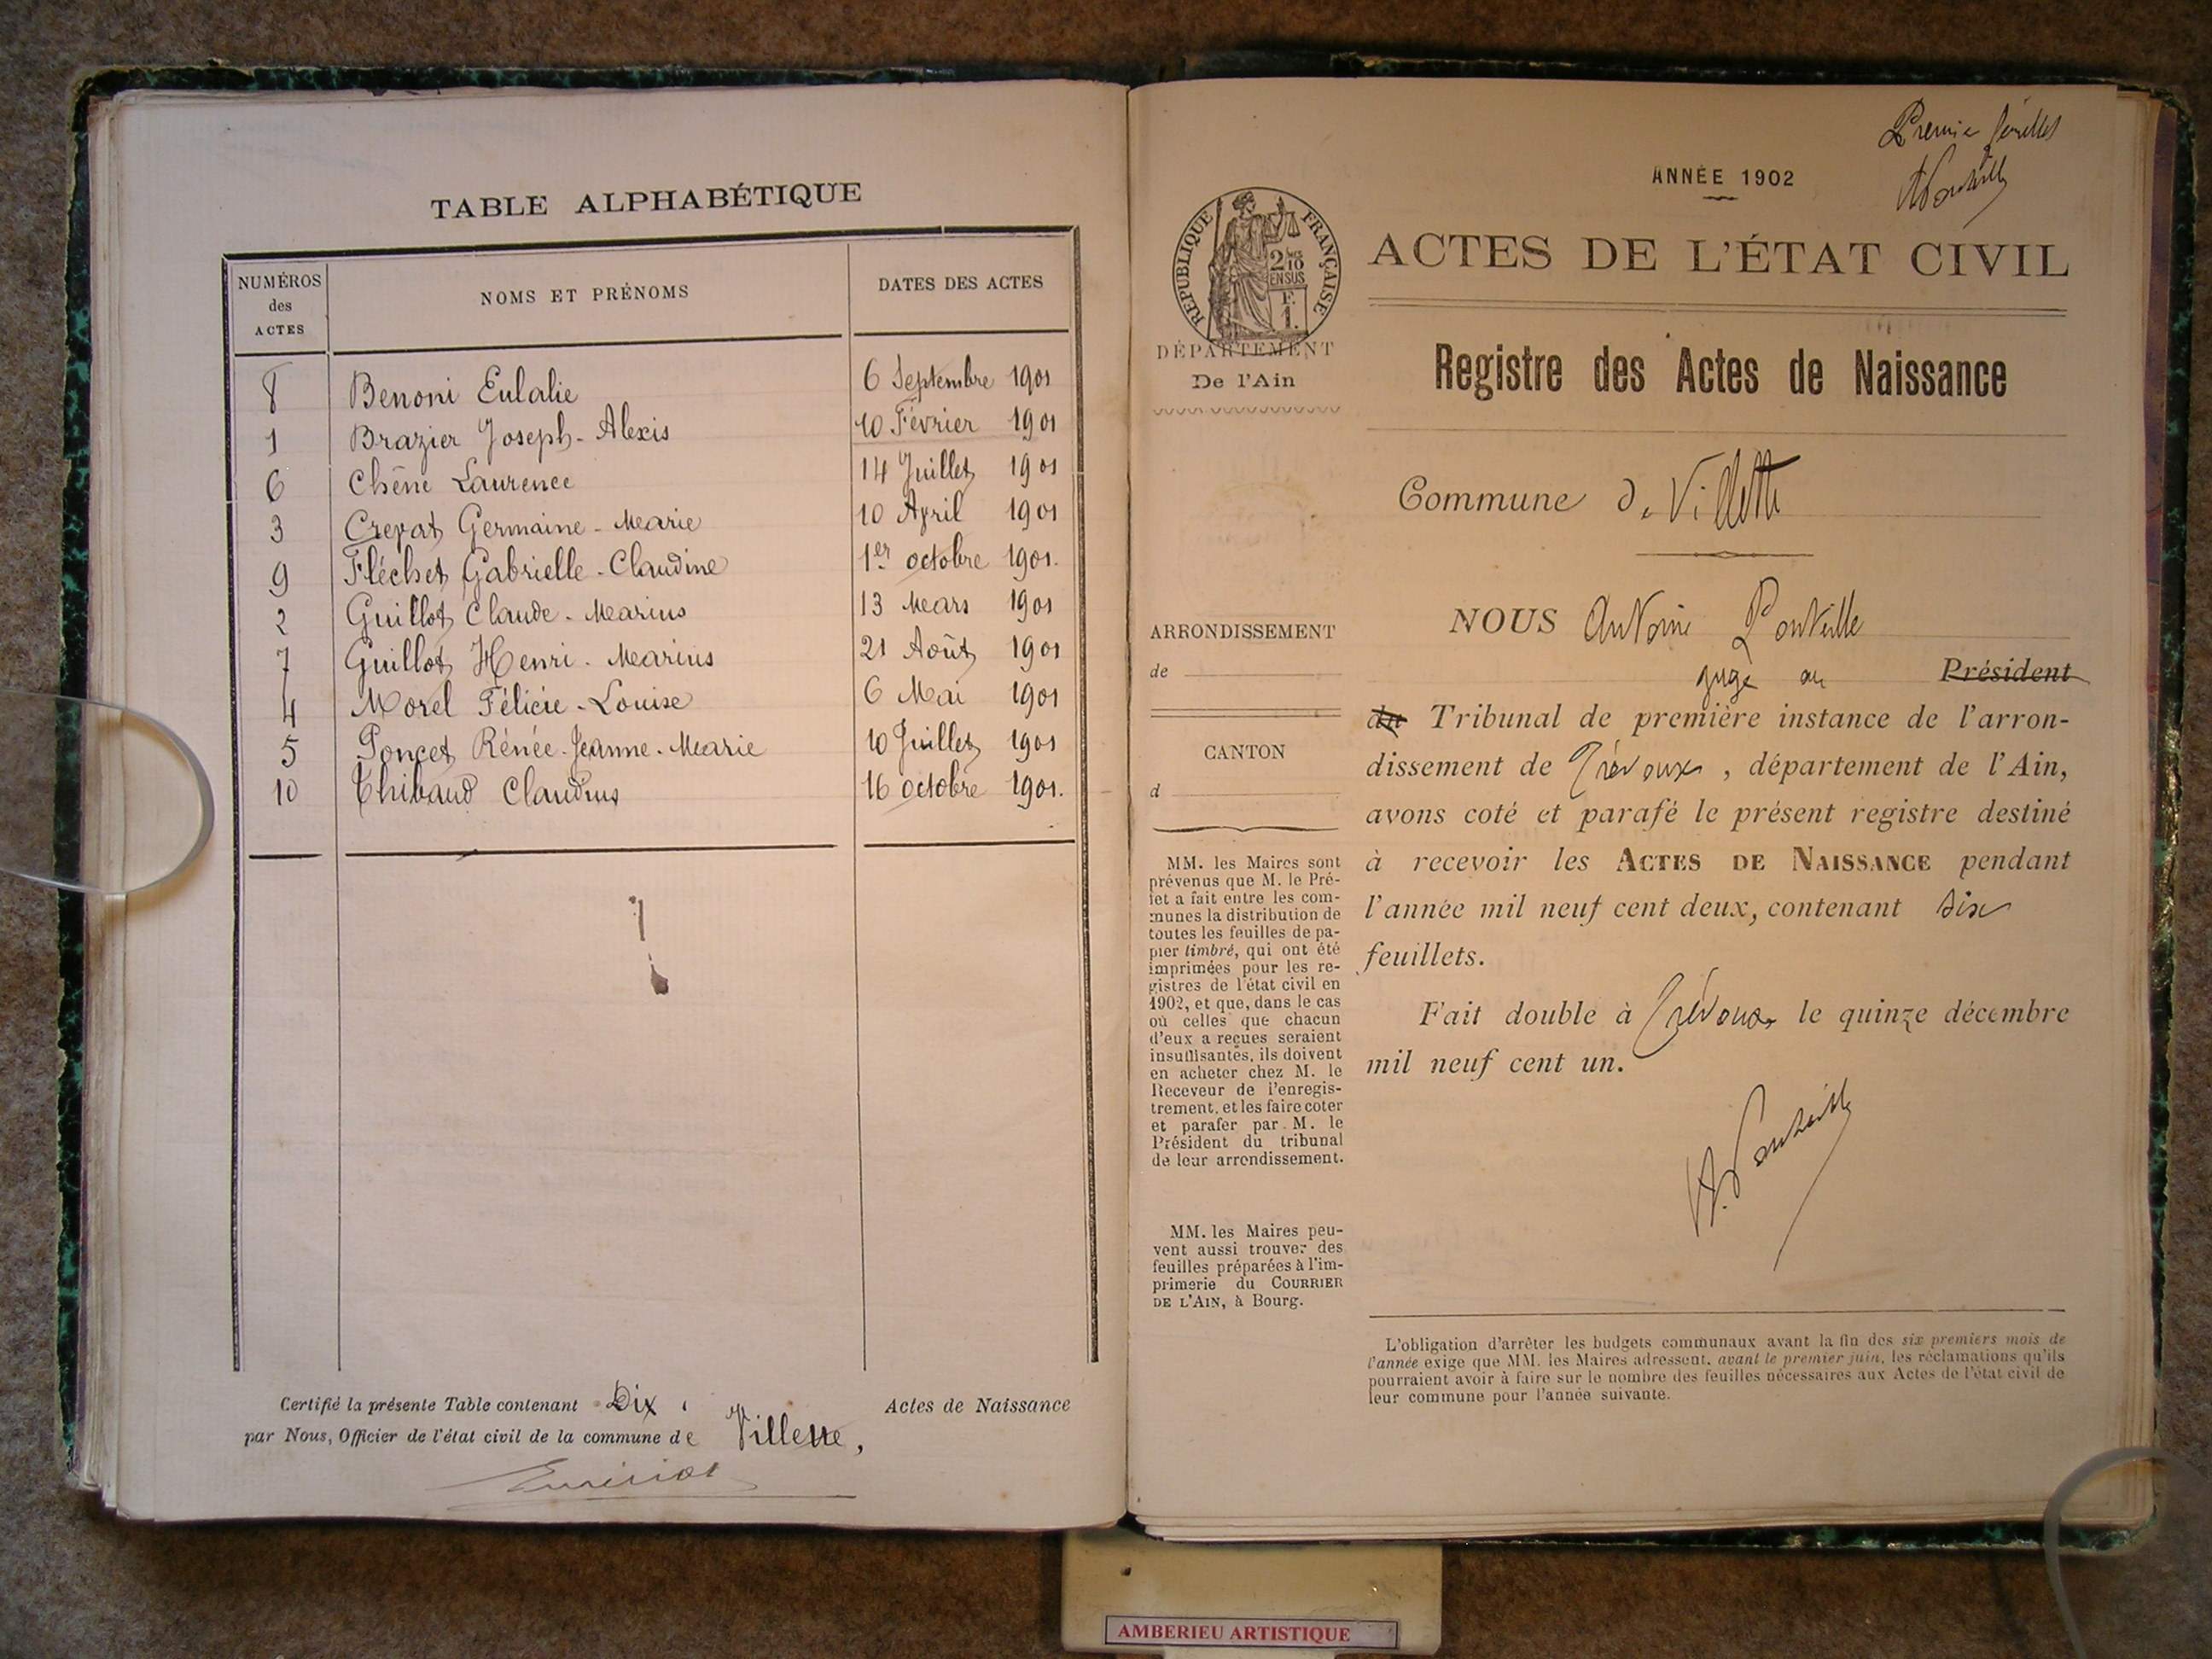 TABLE ALPHABÉTIQUE
NUMÉROS
des
ACTES
NOMS ET PRÉNOMS
DATES DES ACTES
8 Benoni Eulalie 6 Septembre 1901
1 Brazier Joseph-Alexis 10 Février 1901
6 Chêne Laurence 14 Juillet 1901
3 Crepat Germaine-Marie 10 April 1901
9 Fléchet Gabrielle-Claudine 1er octobre 1901.
2 Guillot Claude-Marius 13 Mars 1901
7 Guillot Henri-Marius 21 Août 1901
4 Morel Félicie-Louise 6 Mai 1901
5 Poncet Rénée-Jeanne-Marie 10 Juillet 1901
10 Thibaud Claudius 16 octobre 1901.
Certifié la présente Table contenant Dix Actes de Naissance
par Nous, Officier de l'état civil de la commune de Villette,
Premier feuillet
ANNÉE 1902
RÉPUBLIQUE FRANÇAISE
2/10
EN SUS
F.
1.
ACTES DE L'ÉTAT CIVIL
DÉPARTEMENT
De l'Ain
Registre des Actes de Naissance
Commune de Villette
NOUS Antoine Ponteille
juge au Président
du Tribunal de première instance de l'arron-
dissement de Trévoux, département de l'Ain,
avons coté et parafé le présent registre destiné
à recevoir les ACTES DE NAISSANCE pendant
l'année mil neuf cent deux, contenant six
feuillets.
Fait double à Trévoux le quinze décembre
mil neuf cent un.
A. Ponteille
ARRONDISSEMENT
de
CANTON
d
MM. les Maires sont
prévenus que M. le Pré-
fet a fait entre les com-
munes la distribution de
toutes les feuilles de pa-
pier timbré, qui ont été
imprimées pour les re-
gistres de l'état civil en
1902, et que, dans le cas
où celles que chacun
d'eux a reçues seraient
insuffisantes, ils doivent
en acheter chez M. le
Receveur de l'enregis-
trement, et les faire coter
et parafer par M. le
Président du tribunal
de leur arrondissement.
MM. les Maires peu-
vent aussi trouver des
feuilles préparées à l'im-
primerie du COURRIER
DE L'AIN, à Bourg.
L'obligation d'arrêter les budgets communaux avant la fin des six premiers mois de
l'année exige que MM. les Maires adressent, avant le premier juin, les réclamations qu'ils
pourraient avoir à faire sur le nombre des feuilles nécessaires aux Actes de l'état civil de
leur commune pour l'année suivante.
AMBERIEU ARTISTIQUE